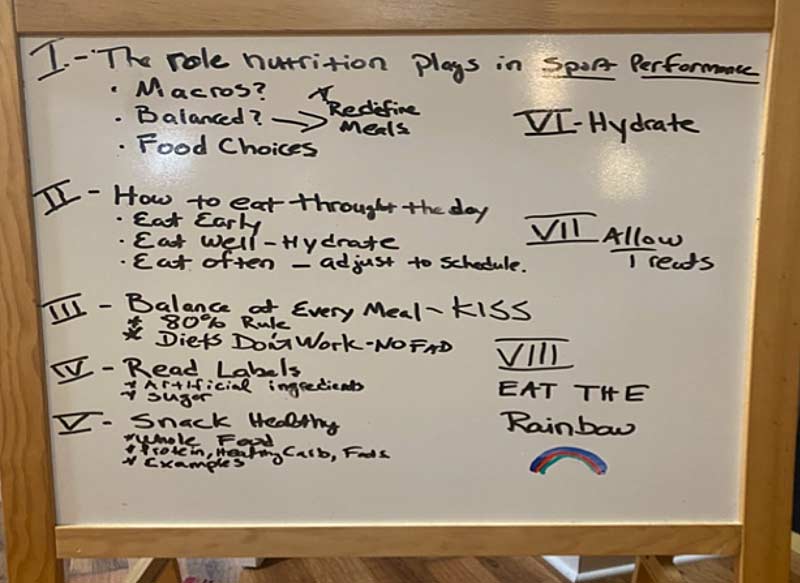 I - The role nutrition plays in Sport Performance
• Macros?
• Balanced? → * Redefine Meals
• Food Choices
II - How to eat throught the day
• Eat Early
• Eat Well - Hydrate
• Eat often - adjust to schedule.
III - Balance at Every Meal - KISS
* 80% Rule
* Diets Don't Work - NO FAD
IV - Read Labels
* Artificial ingredients
* Sugar
V - Snack Healthy
* Whole Food
* Protein, Healthy Carb, Fats
* Examples
VI - Hydrate
VII Allow
Treats
VIII
EAT THE
Rainbow